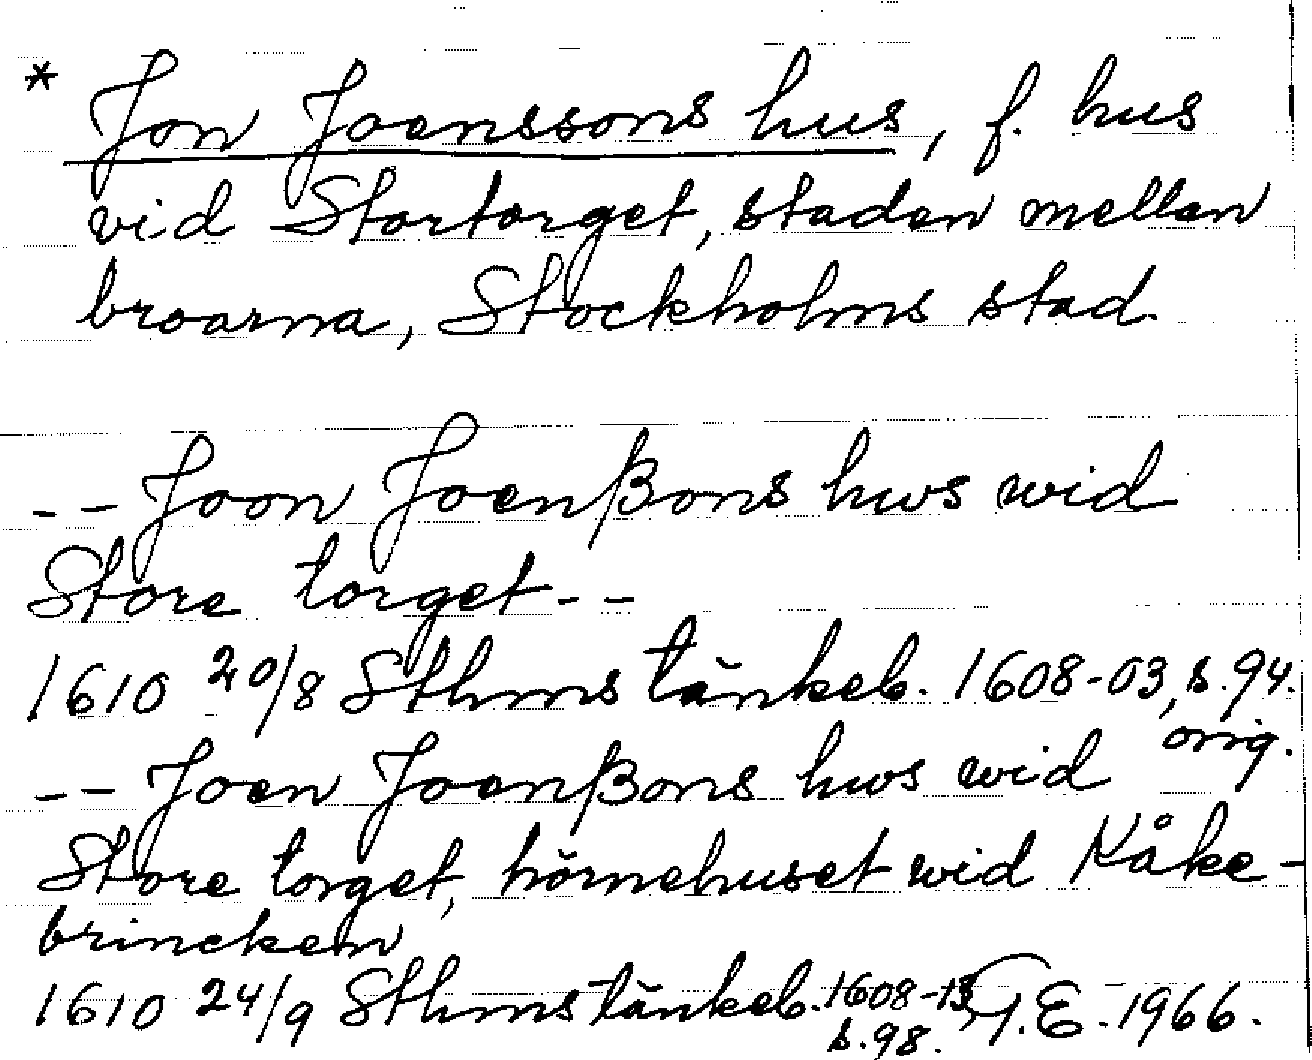 * Jon Joenssons hus, f. hus
vid Stortorget, staden mellan
broarna, Stockholms stad
-- Joon Joenßons hws wid
Store torget --
1610 20/8 Sthms tänkeb. 1608-03, s. 94.
orig.
-- Joen Joenßons hws wid
Store torget, hörnehuset wid Kåke-
brincken
1610 24/9 Sthms tänkeb. 1608-13
s. 98. G.E. 1966.